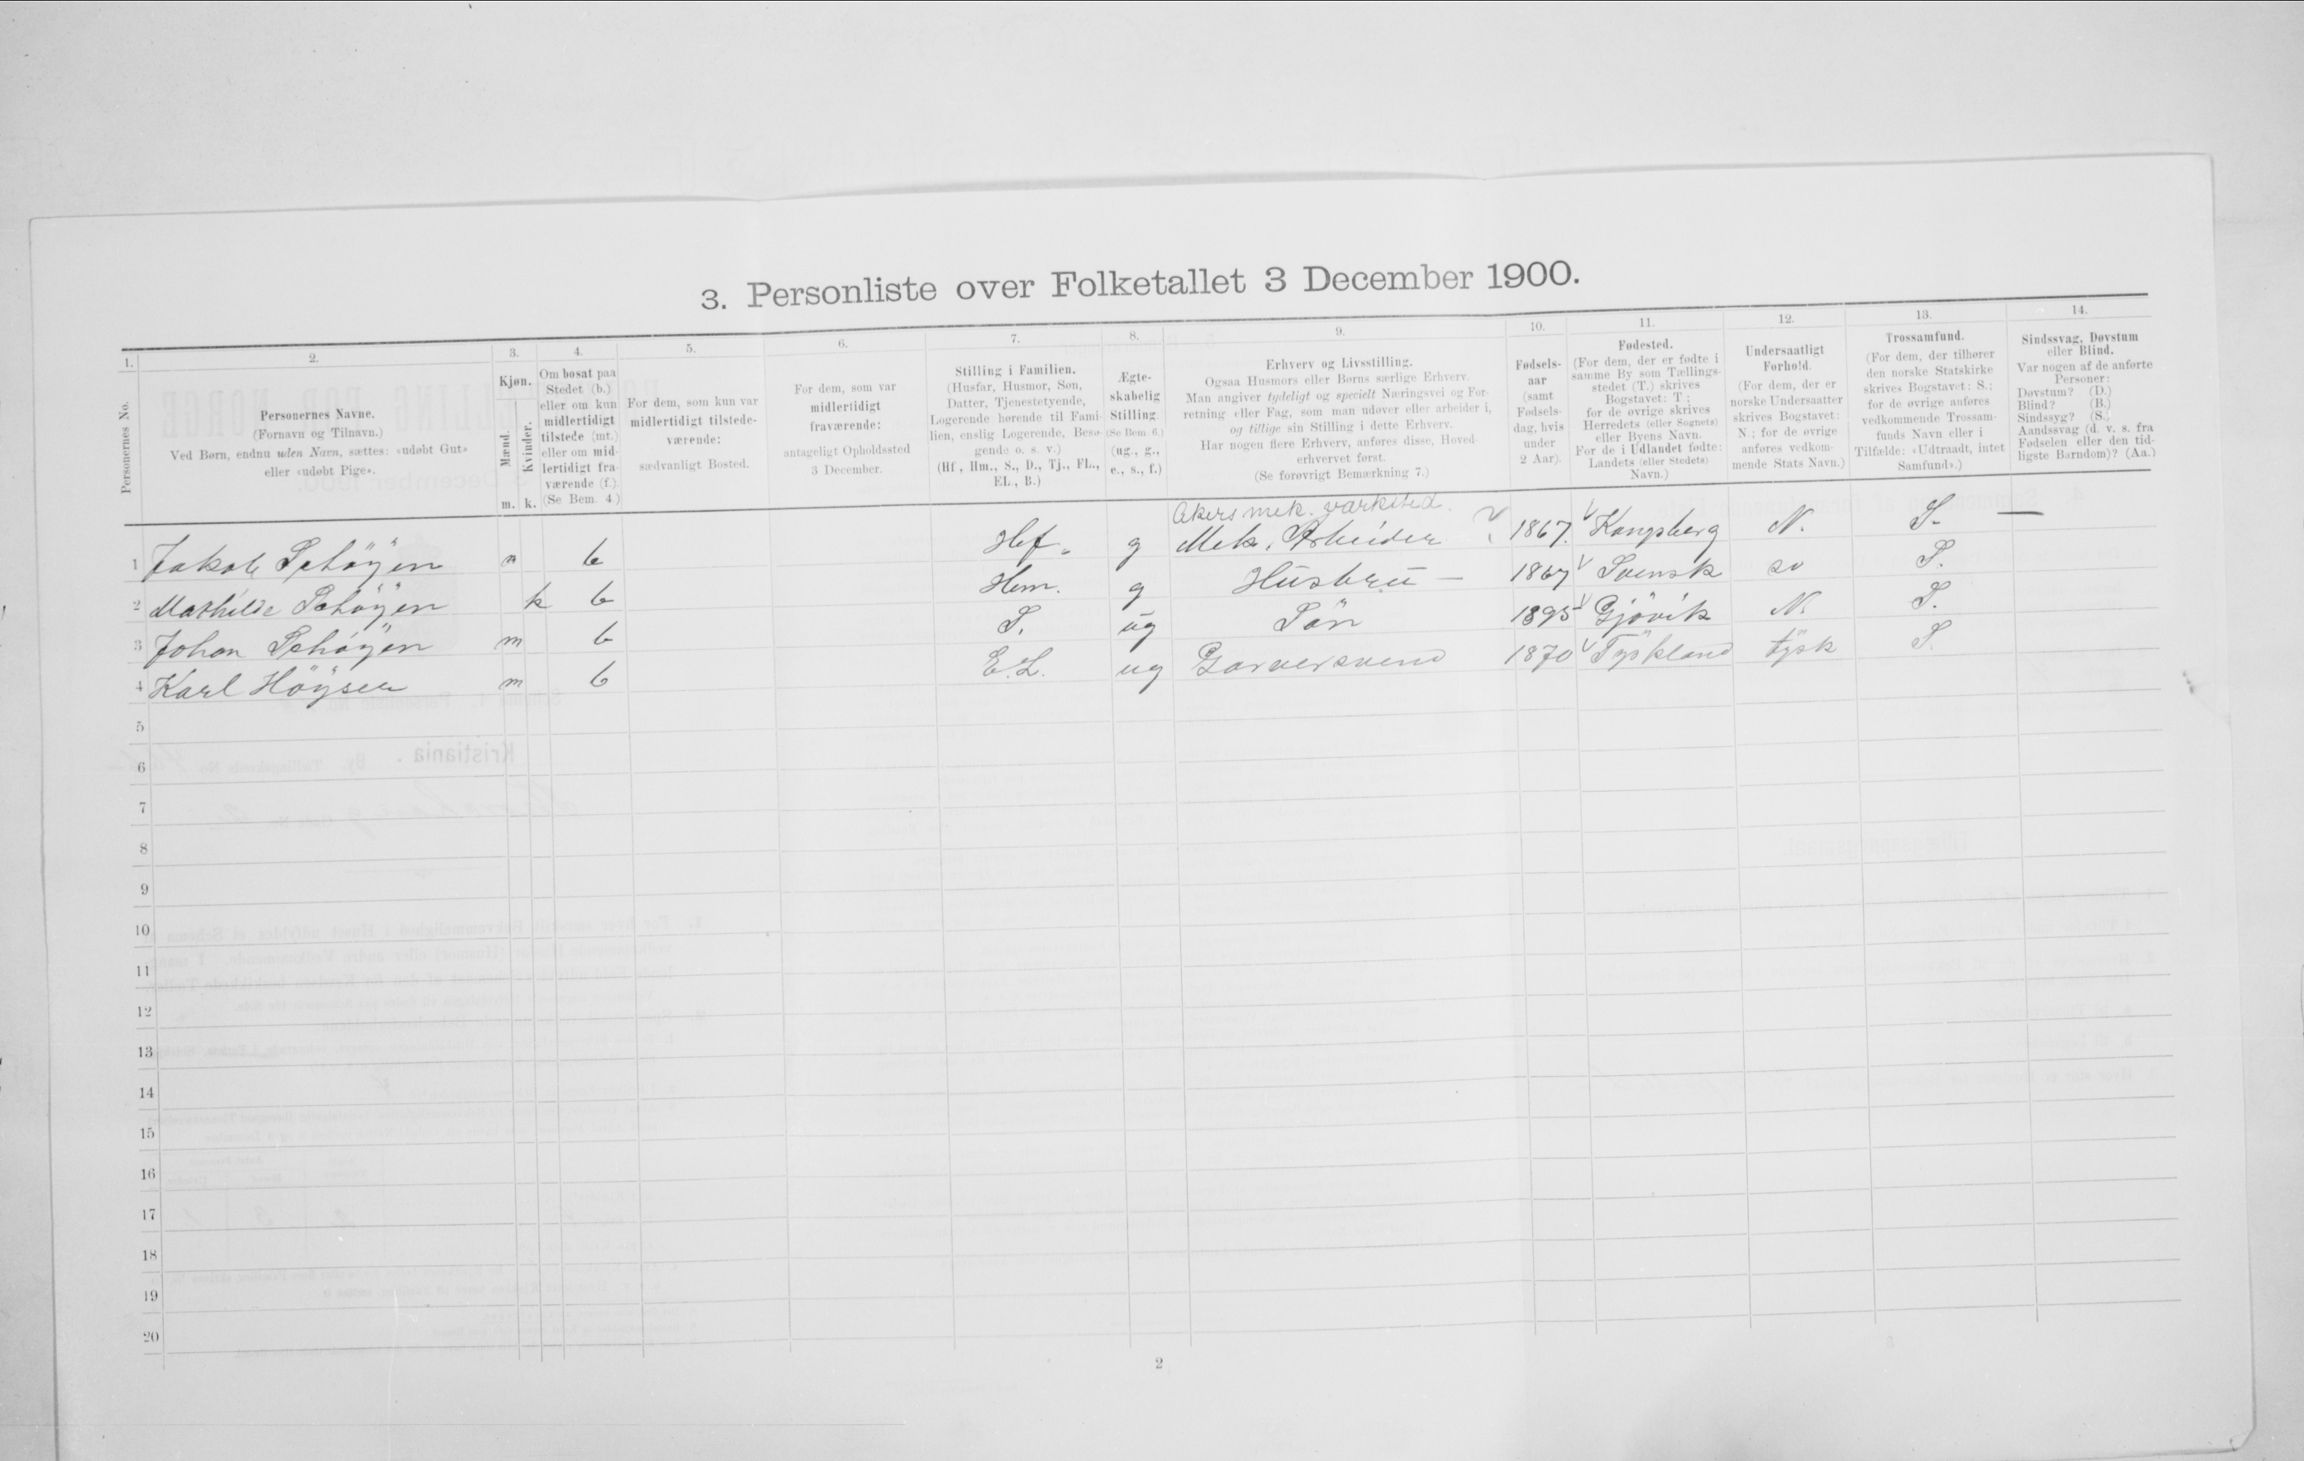 3. Personliste over Folketallet 3 December 1900.
1. 2. 3. 4. 5. 6. 7. 8. 9. 10. 11. 12. 13. 14.
Personernes No.
Personernes Navne.
(Fornavn og Tilnavn.)
Ved Børn, endnu uden Navn, sættes: «udøbt Gut»
eller «udøbt Pige».
Kjøn.
Mænd.
Kvinder.
m. k.
Om bosat paa
Stedet (b.)
eller om kun
midlertidigt
tilstede (mt.)
eller om mid-
lertidigt fra-
værende (f.).
(Se Bem. 4.)
For dem, som kun var
midlertidigt tilstede-
værende:
sædvanligt Bosted.
For dem, som var
midlertidigt
fraværende:
antageligt Opholdssted
3 December.
Stilling i Familien.
(Husfar, Husmor, Søn,
Datter, Tjenestetyende,
Logerende hørende til Fami-
lien, enslig Logerende, Besø-
gende o. s. v.)
(Hf., Hm., S., D., Tj., FL.,
EL., B.)
Ægte-
skabelig
Stilling.
(Se Bem. 6.)
(ug., g.,
e., s., f.)
Erhverv og Livsstilling.
Ogsaa Husmors eller Børns særlige Erhverv.
Man angiver tydeligt og specielt Næringsvei og For-
retning eller Fag, som man udøver eller arbeider i,
og tillige sin Stilling i dette Erhverv.
Har nogen flere Erhverv, anføres disse, Hoved-
erhvervet først.
(Se forøvrigt Bemærkning 7.)
Fødsels-
aar
(samt
Fødsels-
dag, hvis
under
2 Aar).
Fødested.
(For dem, der er fødte i
samme By som Tællings-
stedet (T.) skrives
Bogstavet: T;
for de øvrige skrives
Herredets (eller Sognets)
eller Byens Navn.
For de i Udlandet fødte:
Landets (eller Stedets)
Navn.)
Undersaatligt
Forhold.
(For dem, der er
norske Undersaatter
skrives Bogstavet:
N.; for de øvrige
anføres vedkom-
mende Stats Navn.)
Trossamfund.
(For dem, der tilhører
den norske Statskirke
skrives Bogstavet: S.;
for de øvrige anføres
vedkommende Trossam-
funds Navn eller i
Tilfælde: «Udtraadt, intet
Samfund».)
Sindssvag, Døvstum
eller Blind.
Var nogen af de anførte
Personer:
Døvstum? (D.)
Blind? (B.)
Sindssyg? (S.)
Aandssvag (d. v. s. fra
Fødselen eller den tid-
ligste Barndom)? (Aa.)
Akers mek. værksted.
1 Jakob Schöyen m b Hf. g Mek. Arbeider 1867. Kongsberg N. S. —
2 Mathilde Schöyen k b Hm. g Hüstrü — 1867 Svensk sv S.
3 Johan Schöyen m b S. ug Sön 1895 Gjövik N. S.
4 Karl Höysen m b E.L. ug Garversvend 1870 Tyskland tysk S.
5
6
7
8
9
10
11
12
13
14
15
16
17
18
19
20
2